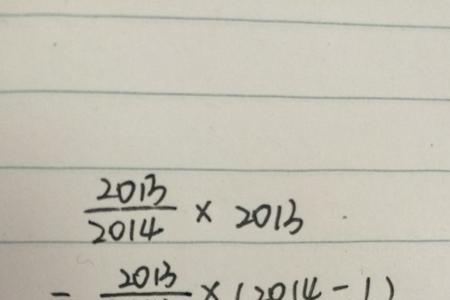 2013/2014 × 2013
= 2013/2014 × (2014 - 1)